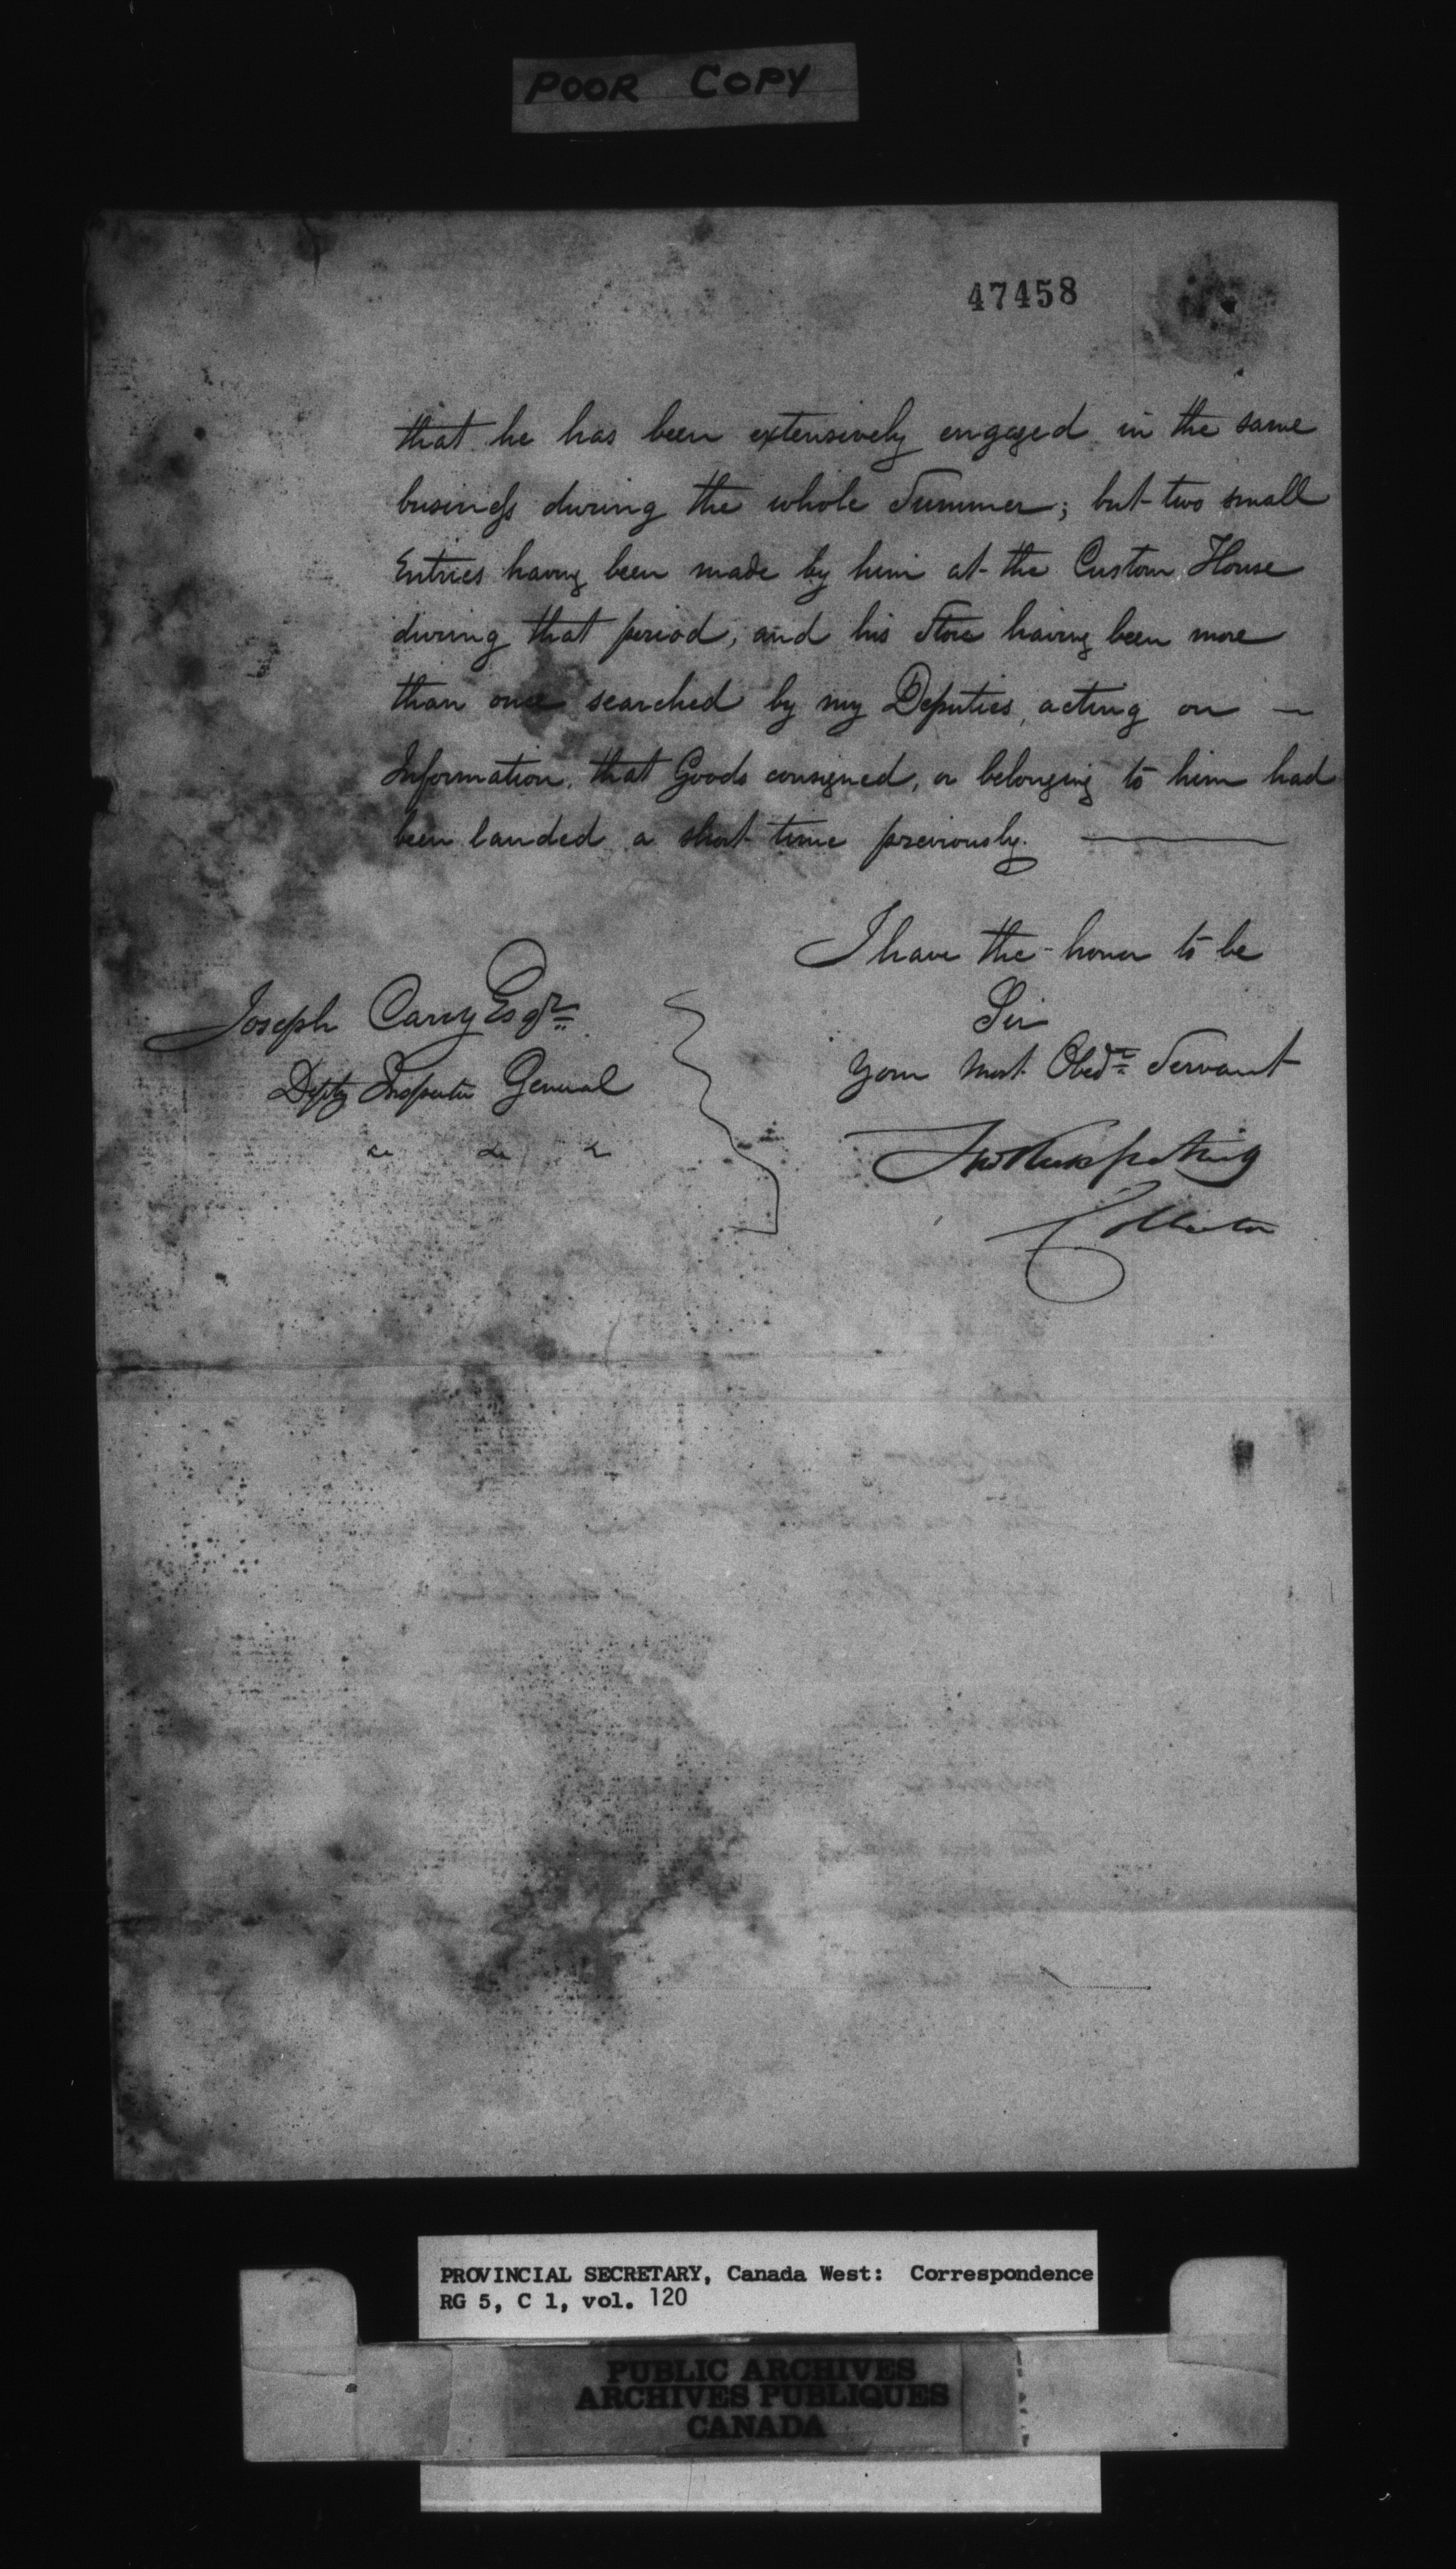 POOR COPY
47458
that he has been extensively engaged in the same
business during the whole Summer; but two small
Entries having been made by him at the Custom House
during that period, and his Store having been more
than once searched by my Deputies, acting on —
Information, that Goods consigned, or belonging to him had
been landed a short time previously. ———
I have the honor to be
Sir
Your most Obedt Servant
Collector
Joseph Cary Esqr
Depty Inspector General
&c &c &c
PROVINCIAL SECRETARY, Canada West: Correspondence
RG 5, C 1, vol. 120
PUBLIC ARCHIVES
ARCHIVES PUBLIQUES
CANADA